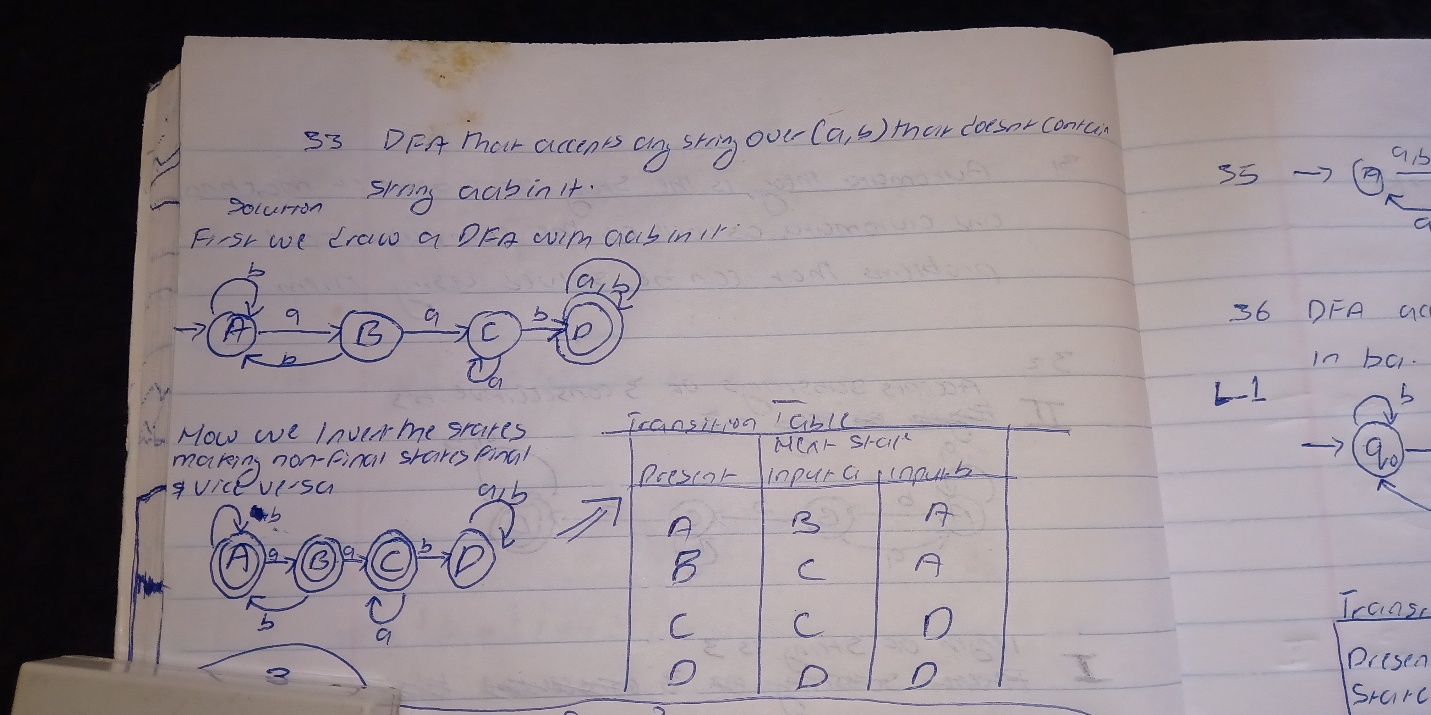 33 DFA that accepts any string over (a,b) that doesnt contain
string aab in it.
Solution
First we draw a DFA with aab in it:
b
a
a
b
a,b
A
B
C
D
b
a
Now we Invert the states
making non-final states final
& vice versa
b
a
a
b
a,b
A
B
C
D
b
a
Transition Table
Next State
Present
Input a
Input b
A B A
B C A
C C D
D D D
3
I
II
35
A
a,b
a
36 DFA
in ba.
L-1
b
q0
Presen
State